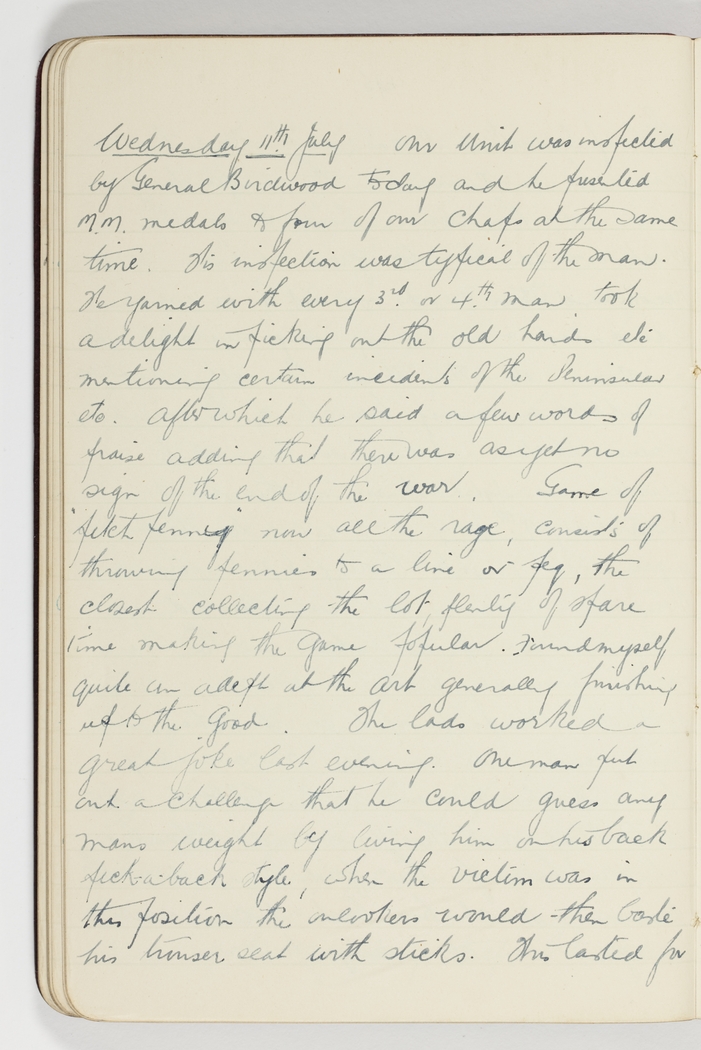 Wednesday 11th July Our Unit was inspected
by General Birdwood today and he presented
M.M. medals to four of our chaps at the same
time. His inspection was typical of the man.
He yarned with every 3rd. or 4th. man took
a delight in picking out the old hands etc
mentioning certain incidents of the Peninsular
etc. After which he said a few words of
praise adding that there was as yet no
sign of the end of the war. Game of
"pitch penney" now all the rage, consists of
throwing pennies to a line or peg, the
closest collecting the lot, plenty of spare
time making the game popular. Found myself
quite an adept at the art generally finishing
up to the Good. The lads worked a
great joke last evening. One man put
out a challenge that he could guess any
mans weight by having him on his back
pick-a-back style, when the victim was in
this position the onlookers would then baste
his trouser seat with sticks. This lasted for